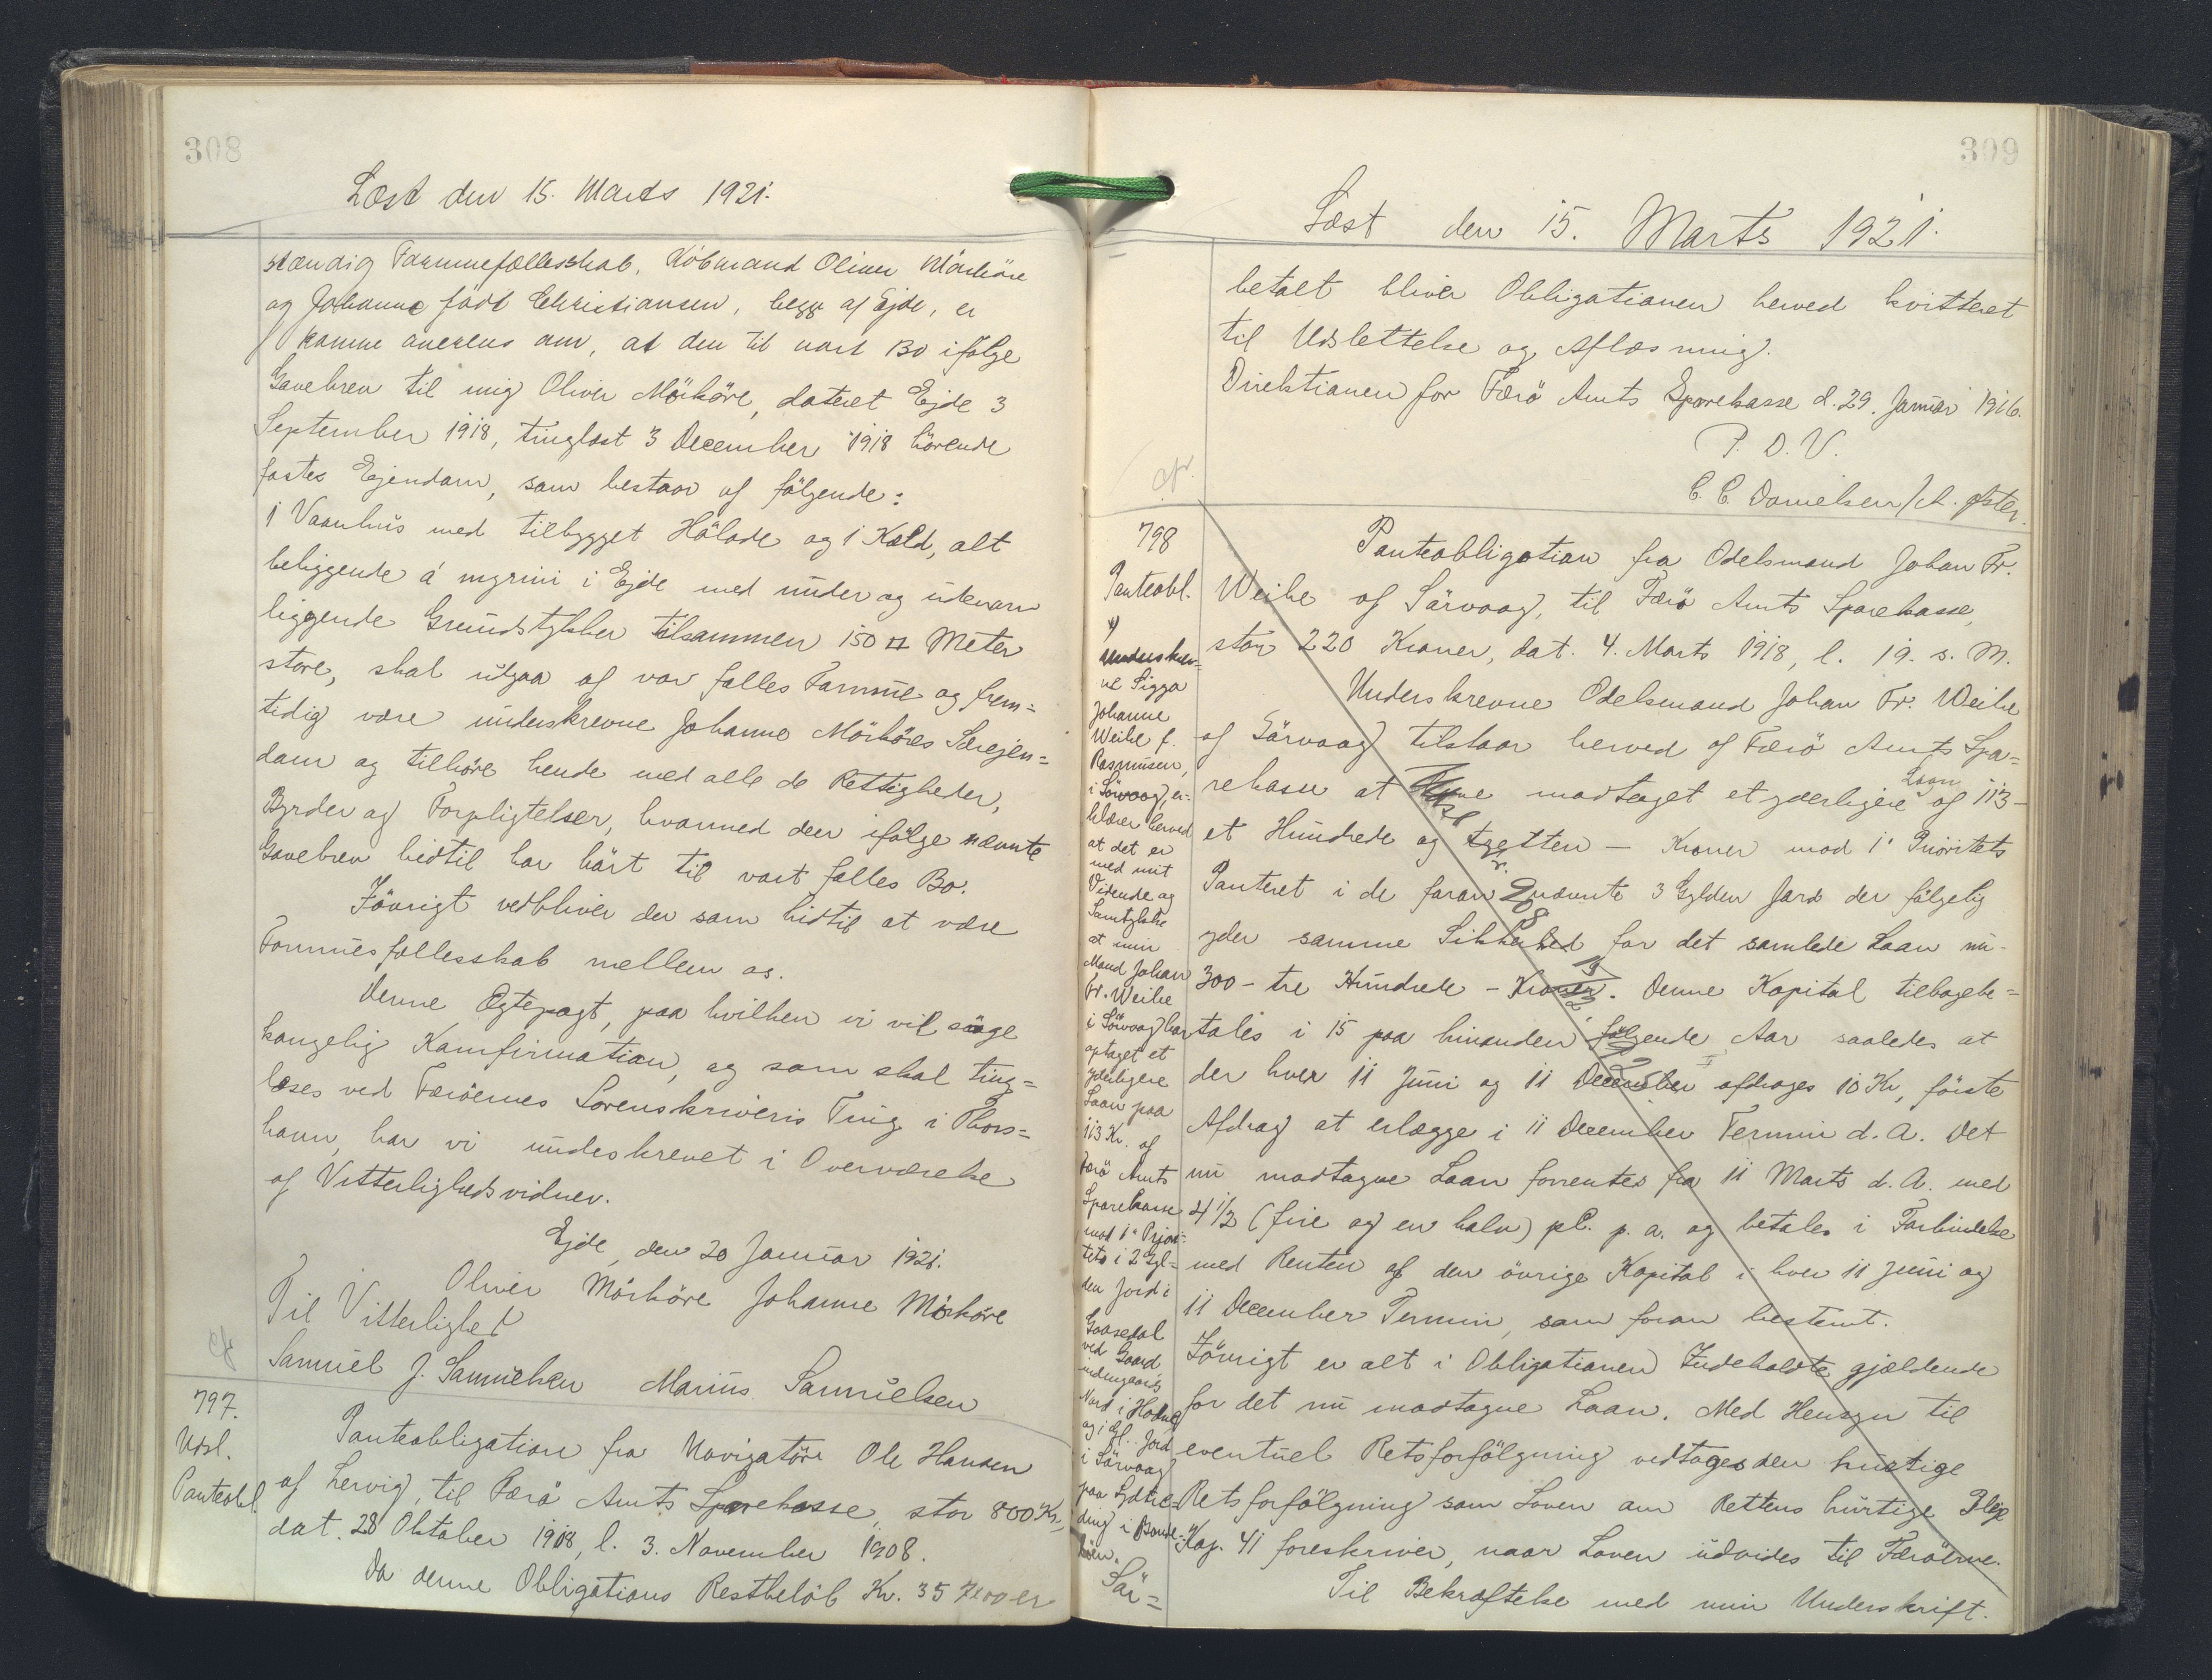 308
Læst den 15. Marts 1921.
stændig Formuefællesskab, Köbmand Oliver Mörköre
og Johanne född Christiansen, begge af Ejde, er
komne overens om, at den til vort Bo ifölge
Gavebrev til mig Oliver Mörköre, dateret Ejde 3
September 1918, tinglæst 3 December 1918 hörende
fastes Ejendom, som bestaar af fölgende:
1 Vaanhus med tilbygget Hölade og 1 Kæld, alt
beliggende á myrini i Ejde med under og udenom
liggende Grundstykker tilsammen 150 □ Meter
store, skal udgaa af vor fælles Formue og frem=
tidig være underskrevne Johanne Mörköres Særejen=
dom og tilhöre hende med alle de Rettigheder,
Byrder og Forpligtelser, hvormed den ifölge nævnte
Gavebrev hidtil har hört til vort fælles Bo.
Iövrigt vedbliver der som hidtil at være
Formuesfællesskab mellem os.
Denne Ægtepagt, paa hvilken vi vil söge
kongelig Konfirmation, og som skal ting=
læses ved Færöernes Sorenskriveris Ting i Thors=
havn, har vi underskrevet i Overværelse
af Vitterlighedsvidner.
Ejde, den 20 Januar 1921.
Oliver Mörköre Johanne Mörköre
Til Vitterlighed
Samuel J. Samuelsen Marius Samuelsen
cfr
797.
Udsl.
Panteobl.
Panteobligation fra Navigatör Ole Hansen
af Lervig, til Færö Amts Sparekasse, stor 800 Kr,
dat. 28 Oktober 1908, l. 3. November 1908.
Da denne Obligations Restbelöb Kr. 35 7/100 er
309
Læst den 15. Marts 1921.
betalt bliver Obligationen herved kvitteret
til Udslettelse og Aflæsning.
Direktionen for Færö Amts Sparekasse d. 29. Januar 1916.
P. D. V.
C. C. Danielsen/A. Öster.
cfr.
798
Panteobl.
Panteobligation fra Odelsmand Johan Fr.
Weihe af Sörvaag, til Færö Amts Sparekasse,
stor 220 Kroner, dat. 4. Marts 1918, l. 19. s. M.
Underskrevne Odelsmand Johan Fr. Weihe
af Sörvaag tilstaar herved af Færö Amts Spa=
rekasse at have modtaget et yderligere Laan af 113-
et Hundrede og tretten – Kroner mod 1' Prioritets
Panteret i de foran nævnte 3 Gylden Jord der fölgelig
yder samme Sikkerhed for det samlede Laan nu-
300 – tre Hundrede – Kroner. Denne Kapital tilbagebe=
tales i 15 paa hinanden fölgende Aar saaledes at
der hver 11 Juni og 11 December afdrages 10 Kr, förste
Afdrag at erlægge i 11 December Termin d. A. Det
nu modtagne Laan forrentes fra 11 Marts d. A. med
4 1/2 (fire og en halv) pC. p. a. og betales i Forbindelse
med Renten af den övrige Kapital i hver 11 Juni og
11 December Termin, som foran bestemt.
Iövrigt er alt i Obligationen Indeholdte gjældende
for det nu modtagne Laan. Med Hensyn til
eventuel Retsforfölgning vedtages den hurtige
Retsforfölgning som Loven om Rettens hurtige Pleje
Kap. 41 foreskriver, naar Loven udvides til Færöerne.
Til Bekræftelse med min Underskrift.
Underskrev=
ne Sigga
Johanne
Weihe f.
Rasmusen,
i Sörvaag, er=
klærer herved
at det er
med mit
Vidende og
Samtykke
at min
Mand Johan
Fr. Weihe
i Sörvaag har
optaget et
yderligere
Laan paa
113 Kr. af
Færö Amts
Sparekasse
mod 1' Prior=
tets i 2 Gyl=
den Jord i
Gaasedal
ved Gaard
indengaards
Nord i
og 1 Gl. Jord
i Sörvaag
paa
ding i Bonde=
Sör=